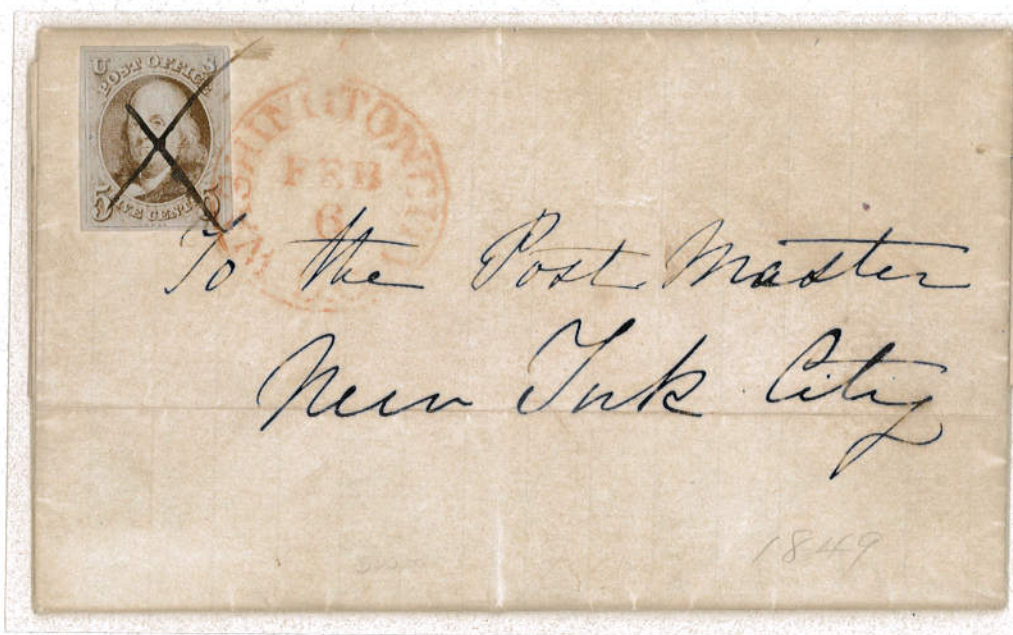 U S
POST OFFICE
5 FIVE CENTS 5
WASHINGTON CITY
FEB
6
To the Post Master
New York City
1849